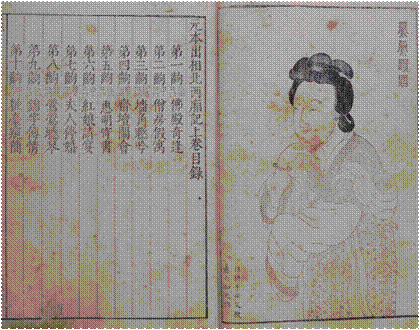 元本出相北西廂記上卷目錄
第一齣 佛殿奇逢
第二齣 僧房假寓
第三齣 墻角聯吟
第四齣 齋壇鬧會
第五齣 惠明寄書
第六齣 紅娘請宴
第七齣 夫人停婚
第八齣 鶯鶯聽琴
第九齣 錦字傳情
第十齣 窺簡